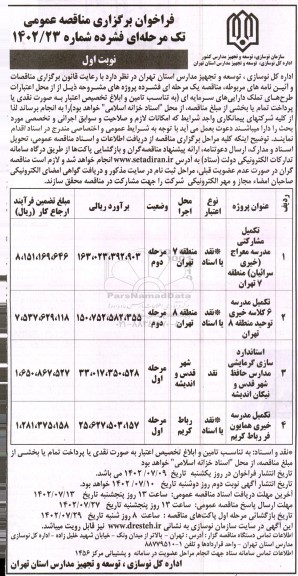 فراخوان برگزاری مناقصه عمومی
تک مرحله‌ای فشرده شماره ۱۴۰۲/۲۳
نوبت اول
سازمان نوسازی، توسعه و تجهیز مدارس کشور
اداره کل نوسازی، توسعه و تجهیز مدارس استان تهران
اداره کل نوسازی ، توسعه و تجهیز مدارس استان تهران در نظر دارد با رعایت قانون برگزاری مناقصات
و آئین نامه های مربوطه، مناقصه یک مرحله ای فشرده پروژه های مشروحه ذیل از از محل اعتبارات
طرح‌های تملک دارایی‌های سرمایه ای (به تناسب تامین و ابلاغ تخصیص اعتبار به صورت نقدی یا
پرداخت تمام یا بخشی از مبلغ مناقصه، از محل "اسناد خزانه اسلامی" خواهد بود) را به انجام برساند لذا
از کلیه شرکتهای پیمانکاری واجد شرایط که امکانات لازم و صلاحیت و سوابق اجرائی و تخصصی مورد
بحث را دارا میباشند دعوت بعمل می آید با توجه به شرایط عمومی و اختصاصی مندرج در اسناد اقدام
نمایند. توضیح اینکه کلیه مراحل برگزاری مناقصه از دریافت اطلاعات و اسناد مناقصه عمومی، تحویل
اسناد و مدارک، ارسال دعوتنامه، ارائه پیشنهاد مناقصه‌گران و بازگشایی پاکت‌ها از طریق درگاه سامانه
تدارکات الکترونیکی دولت (ستاد) به آدرس www.setadiran.ir انجام خواهد شد و لازم است مناقصه
گران در صورت عدم عضویت قبلی، مراحل ثبت نام در سایت مذکور و دریافت گواهی امضای الکترونیکی
صاحبان امضاء مجاز و مهر الکترونیکی شرکت را جهت مشارکت در مناقصه محقق سازند.
ردیف | عنوان پروژه | نوع اعتبار | محل اجرا | وضعیت | برآورد ریالی | مبلغ تضمین فرآیند ارجاع کار (ریال)
۱ | تکمیل مشارکتی مدرسه معراج (خیری سرائیان) منطقه ۷ تهران | *نقد یا اسناد | منطقه ۷ تهران | مرحله دوم | ۱۶۳،۰۲۳،۳۹۲،۹۰۳ | ۸،۱۵۱،۱۶۹،۶۴۶
۲ | تکمیل مدرسه ۶ کلاسه خیری توحید منطقه ۸ تهران | *نقد یا اسناد | منطقه ۸ تهران | مرحله دوم | ۱۵۰،۷۵۲،۵۸۲،۳۵۵ | ۷،۵۳۷،۶۲۹،۱۱۸
۳ | استاندارد سازی گرمایشی مدارس حافظ شهر قدس و نیکان اندیشه | نقد | شهر قدس و اندیشه | مرحله اول | ۳۳،۰۱۷،۳۵۰،۵۲۸ | ۱،۶۵۰،۸۶۷،۵۲۷
۴ | تکمیل مدرسه خیری همایون فر رباط کریم | *نقد یا اسناد | رباط کریم | مرحله اول | ۲۵،۶۲۷،۵۰۳،۱۵۷ | ۱،۲۸۱،۳۷۵،۱۵۸
*نقد و اسناد: به تناسب تامین و ابلاغ تخصیص اعتبار به صورت نقدی یا پرداخت تمام یا بخشی از
مبلغ مناقصه، از محل "اسناد خزانه اسلامی" خواهد بود
تاریخ انتشار فراخوان در روز یکشنبه تاریخ ۱۴۰۲/۰۷/۰۹ می باشد.
تاریخ انتشار آگهی نوبت دوم روز دوشنبه تاریخ ۱۴۰۲/۰۷/۱۰ خواهد بود.
آخرین مهلت دریافت اسناد مناقصه عمومی: ساعت ۱۳ روز پنجشنبه تاریخ ۱۴۰۲/۰۷/۱۳
مهلت ارسال پاسخ مناقصه عمومی: ساعت ۱۳ روز پنجشنبه تاریخ ۱۴۰۲/۰۷/۲۷
تاریخ بازگشائی مرحله اول پاکتهای مناقصه: ساعت ۸ روز شنبه تاریخ ۱۴۰۲/۰۷/۲۹
این آگهی در سایت سازمان نوسازی به نشانی www.dresteh.ir نیز قابل رویت میباشد.
اطلاعات تماس دستگاه مناقصه گزار: آدرس: تهران - بالاتر از میدان ونک - خیابان شهید خلیل زاده - اداره کل نوسازی
مدارس استان تهران - واحد قراردادها و تلفن ۸۸۷۷۹۵۰۱۰۰
اطلاعات تماس سامانه ستاد جهت انجام مراحل عضویت در سامانه و پشتیبانی مرکز ۱۴۵۶
اداره کل نوسازی ، توسعه و تجهیز مدارس استان تهران